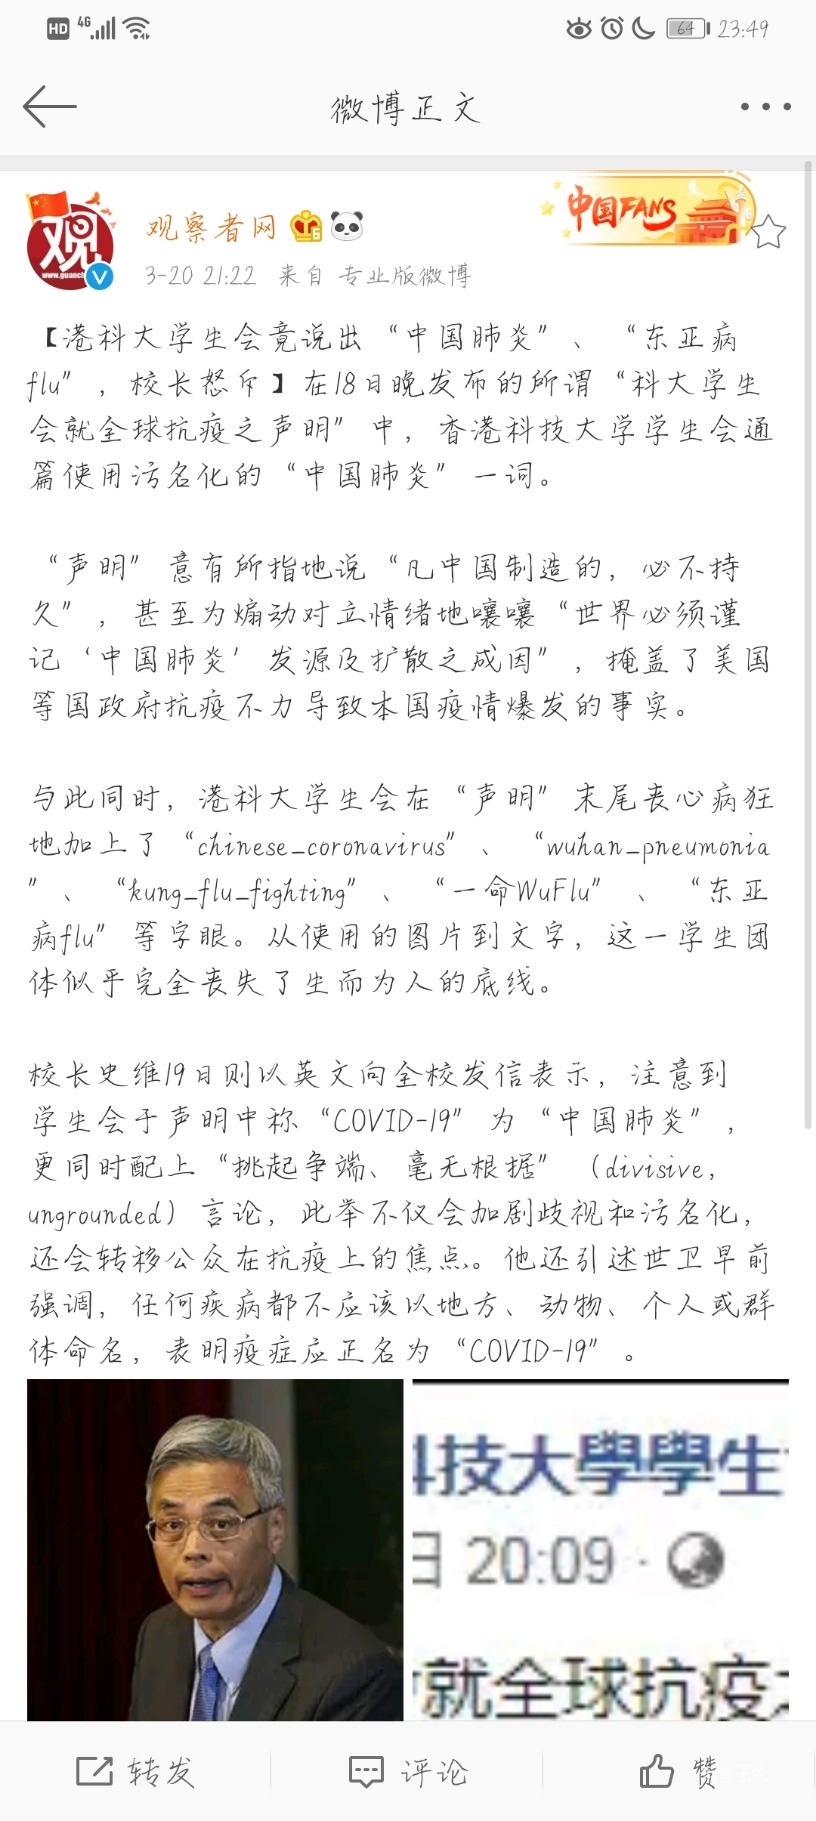 HD 4G 64 23:49
微博正文
观察者网
中国FANS
观
3-20 21:22 来自 专业版微博
【港科大学生会竟说出“中国肺炎”、“东亚病
flu”，校长怒斥】在18日晚发布的所谓“科大学生
会就全球抗疫之声明”中，香港科技大学学生会通
篇使用污名化的“中国肺炎”一词。
“声明”意有所指地说“凡中国制造的，必不持
久”，甚至为煽动对立情绪地嚷嚷“世界必须谨
记‘中国肺炎’发源及扩散之成因”，掩盖了美国
等国政府抗疫不力导致本国疫情爆发的事实。
与此同时，港科大学生会在“声明”末尾丧心病狂
地加上了“chinese_coronavirus”、“wuhan_pneumonia
”、“kung_flu_fighting”、“一命WuFlu”、“东亚
病flu”等字眼。从使用的图片到文字，这一学生团
体似乎完全丧失了生而为人的底线。
校长史维19日则以英文向全校发信表示，注意到
学生会于声明中称“COVID-19”为“中国肺炎”，
更同时配上“挑起争端、毫无根据”（divisive，
ungrounded）言论，此举不仅会加剧歧视和污名化，
还会转移公众在抗疫上的焦点。他还引述世卫早前
强调，任何疾病都不应该以地方、动物、个人或群
体命名，表明疫症应正名为“COVID-19”。
科技大學學生
日 20:09 ·
就全球抗疫
转发 评论 赞